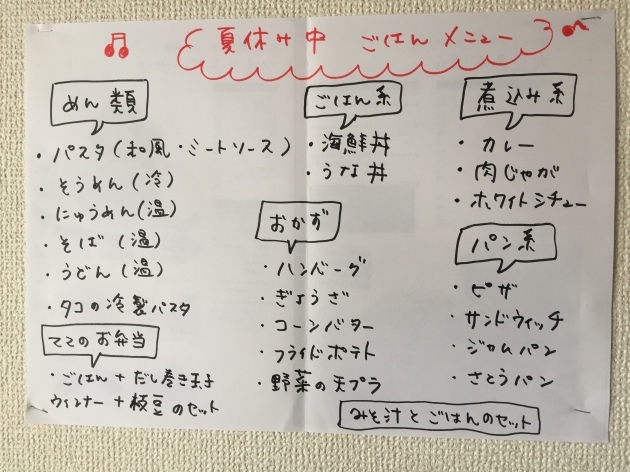 夏休み中 ごはんメニュー
めん類
・パスタ(和風・ミートソース)
・そうめん(冷)
・にゅうめん(温)
・そば(温)
・うどん(温)
・タコの冷製パスタ
ママのお弁当
・ごはん+だし巻き玉子
ウィンナー+枝豆のセット
ごはん系
・海鮮丼
・うな丼
おかず
・ハンバーグ
・ぎょうざ
・コーンバター
・フライドポテト
・野菜の天プラ
煮込み系
・カレー
・肉じゃが
・ホワイトシチュー
パン系
・ピザ
・サンドウィッチ
・ジャムパン
・さとうパン
みそ汁とごはんのセット